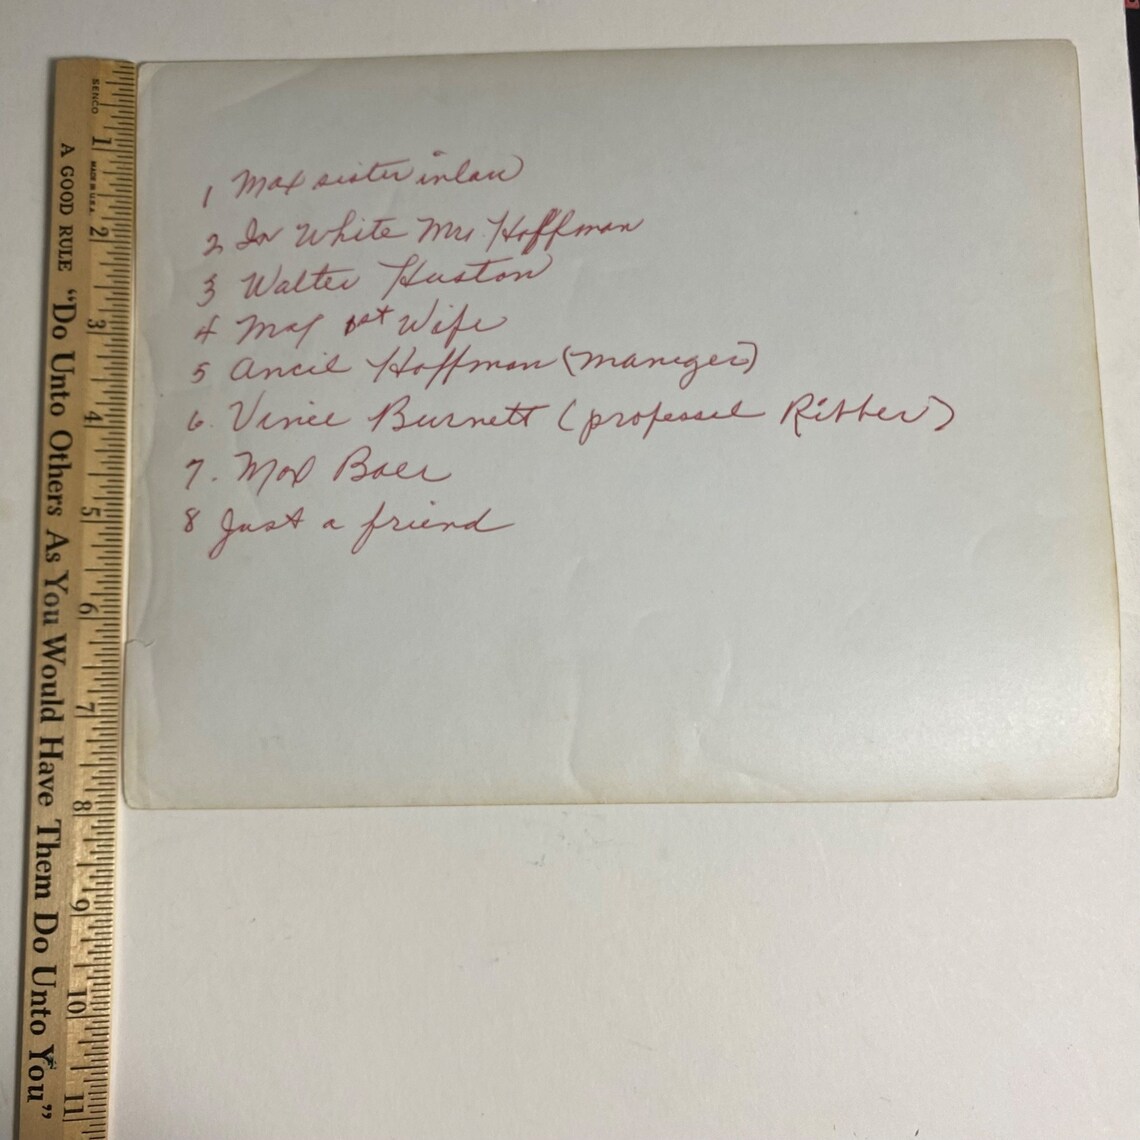 1 Max sister inlaw
2 In White Mrs. Hoffman
3 Walter Huston
4 Max 1st Wife
5 Ancil Hoffman (Maneger)
6. Vince Burnett (professel Ribber)
7. Max Baer
8 Just a friend
SENCO
MADE IN U.S.A.
A GOOD RULE "Do Unto Others As You Would Have Them Do Unto You"
1 2 3 4 5 6 7 8 9 10 11